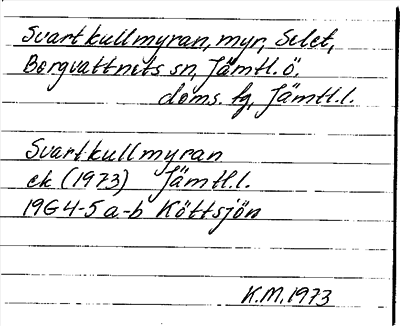 Svartkullmyran, myr, Selet,
Borgvattnets sn, Jämtl. ö.
doms. tg, Jämtl.l.
Svartkullmyran
ek (1973) Jämtl.l.
19G4-5a-b Köttsjön
K.M. 1973